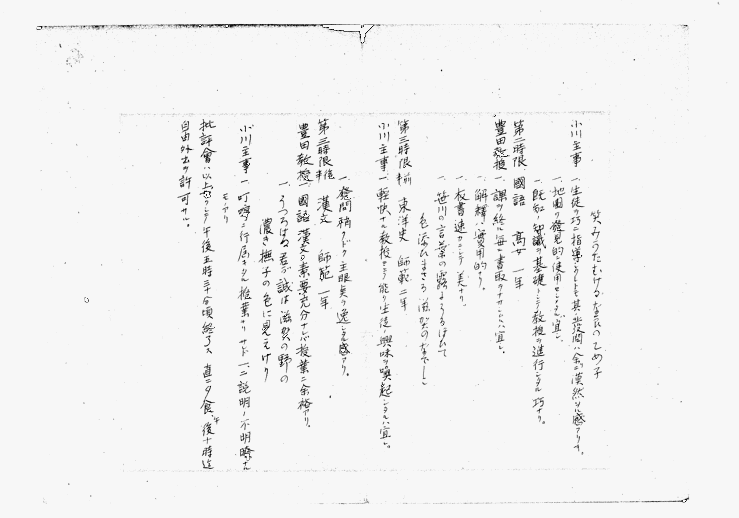 笑みうたむけるなでしこのとめ子
小川主事 一、生徒ヲ巧ニ指導シタルモ其ノ發問ハ余リ漠然タル感アリキ。
一、地圖ヲ發見的使用セシメシハ宜シ。
一、既知ノ知識ヲ基礎トシテ教授ヲ進行シタル巧ナリ。
第二時限 國語 高女 一年
豊田教授 一、課ヲ終ル毎ニ書取ヲナサシムルハ宜シ。
一、解釋ハ實用的ナリ。
一、板書速カニシテ美ナリ。
一、笹川の言葉の露にうるほひて
色添ひまさる滋賀のなでしこ
第三時限前半 東洋史 師範 二年
小川主事 一、輕快ナル教授ニシテ能ク生徒ノ興味ヲ喚起シタルハ宜シ。
一、發問稍クドク主眼點ヲ逸シタル感アリ。
第三時限後半 漢文 師範 一年
豊田教授 一、國語漢文ノ素要充分ナレバ授業ニ余裕アリ。
一、うつろはぬ君が誠は滋賀の野の
濃き撫子の色に見えけり
小川主事 一、叮嚀ニ行届キタル授業ナリ サレド一、二説明ノ不明瞭ナル
モノアリ
批評會ハ以上ニシテ午後五時三十分頃終了ス 直ニ夕食、午後十時迄
自由外出ヲ許可サル。